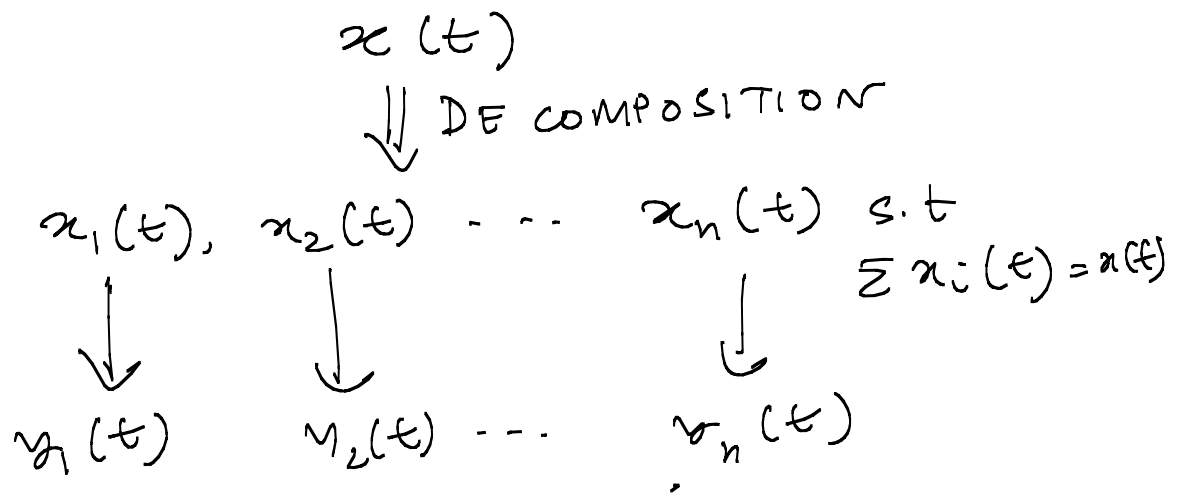 x(t)
DECOMPOSITION
x₁(t), x₂(t) - - - xₙ(t) s.t
Σ xᵢ(t) = x(t)
y₁(t) y₂(t) --- yₙ(t)